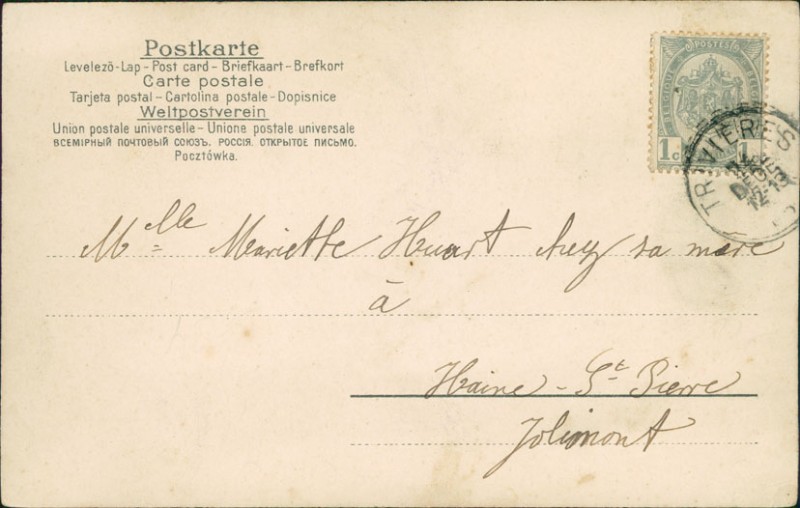 Postkarte
Levelező-Lap – Post card – Briefkaart – Brefkort
Carte postale
Tarjeta postal – Cartolina postale – Dopisnice
Weltpostverein
Union postale universelle – Unione postale universale
ВСЕМІРНЫЙ ПОЧТОВЫЙ СОЮЗЪ. РОССІЯ. ОТКРЫТОЕ ПИСЬМО.
Pocztówka.
POSTES
1c 1
TRIVIERES
Mlle Mariette Huart chez sa mère
à
Haine-St-Pierre
Jolimont